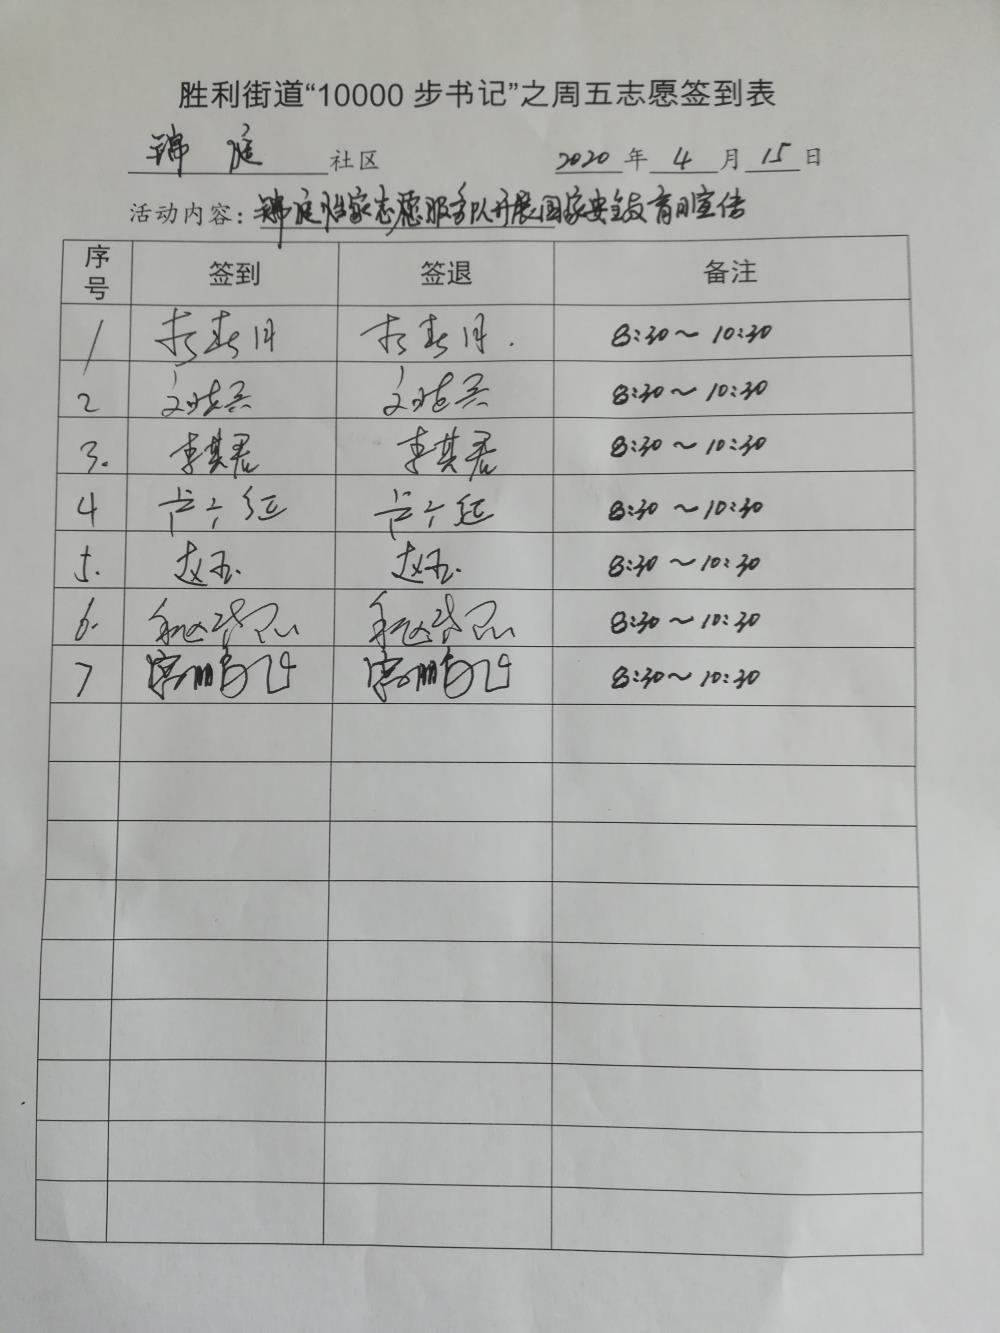 胜利街道“10000 步书记”之周五志愿签到表
锦庭 社区 2020 年 4 月 15 日
活动内容：锦庭怡家志愿服务队开展国家安全教育日宣传
序号 签到 签退 备注
1 8:30～10:30
2 8:30～10:30
3. 李其君 李其君 8:30～10:30
4 8:30～10:30
5. 赵玉 赵玉 8:30～10:30
6. 8:30～10:30
7 8:30～10:30